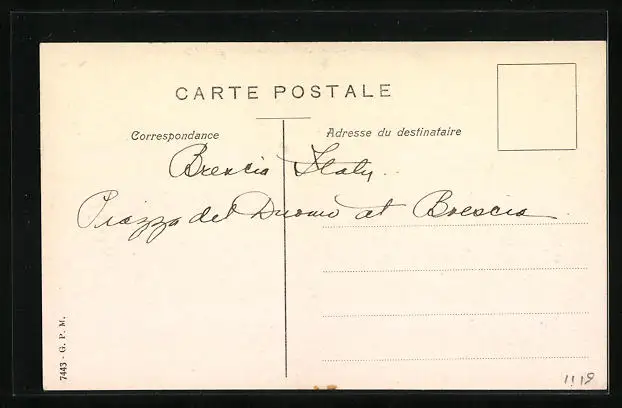 CARTE POSTALE
Correspondance
Adresse du destinataire
Brescia Italy..
Piazza del Duomo at Brescia
7443 - G. P. M.
1119